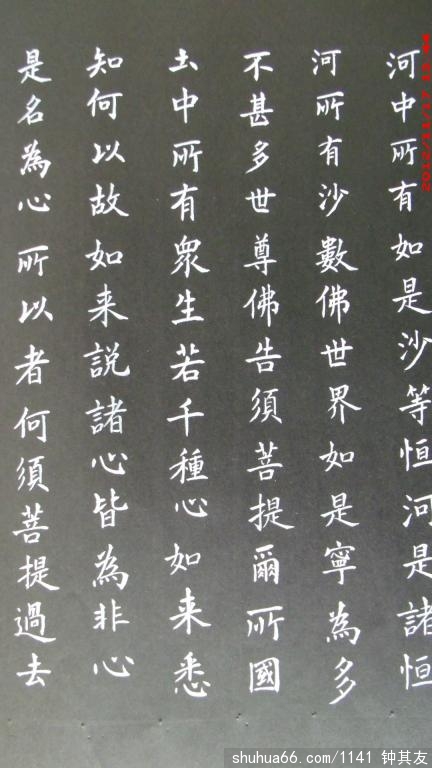 河中所有如是沙等恒河是諸恒
河所有沙數佛世界如是寧為多
不甚多世尊佛告須菩提爾所國
土中所有衆生若千種心如来悉
知何以故如来説諸心皆為非心
是名為心所以者何須菩提過去
shuhua66.com/1141 钟其友